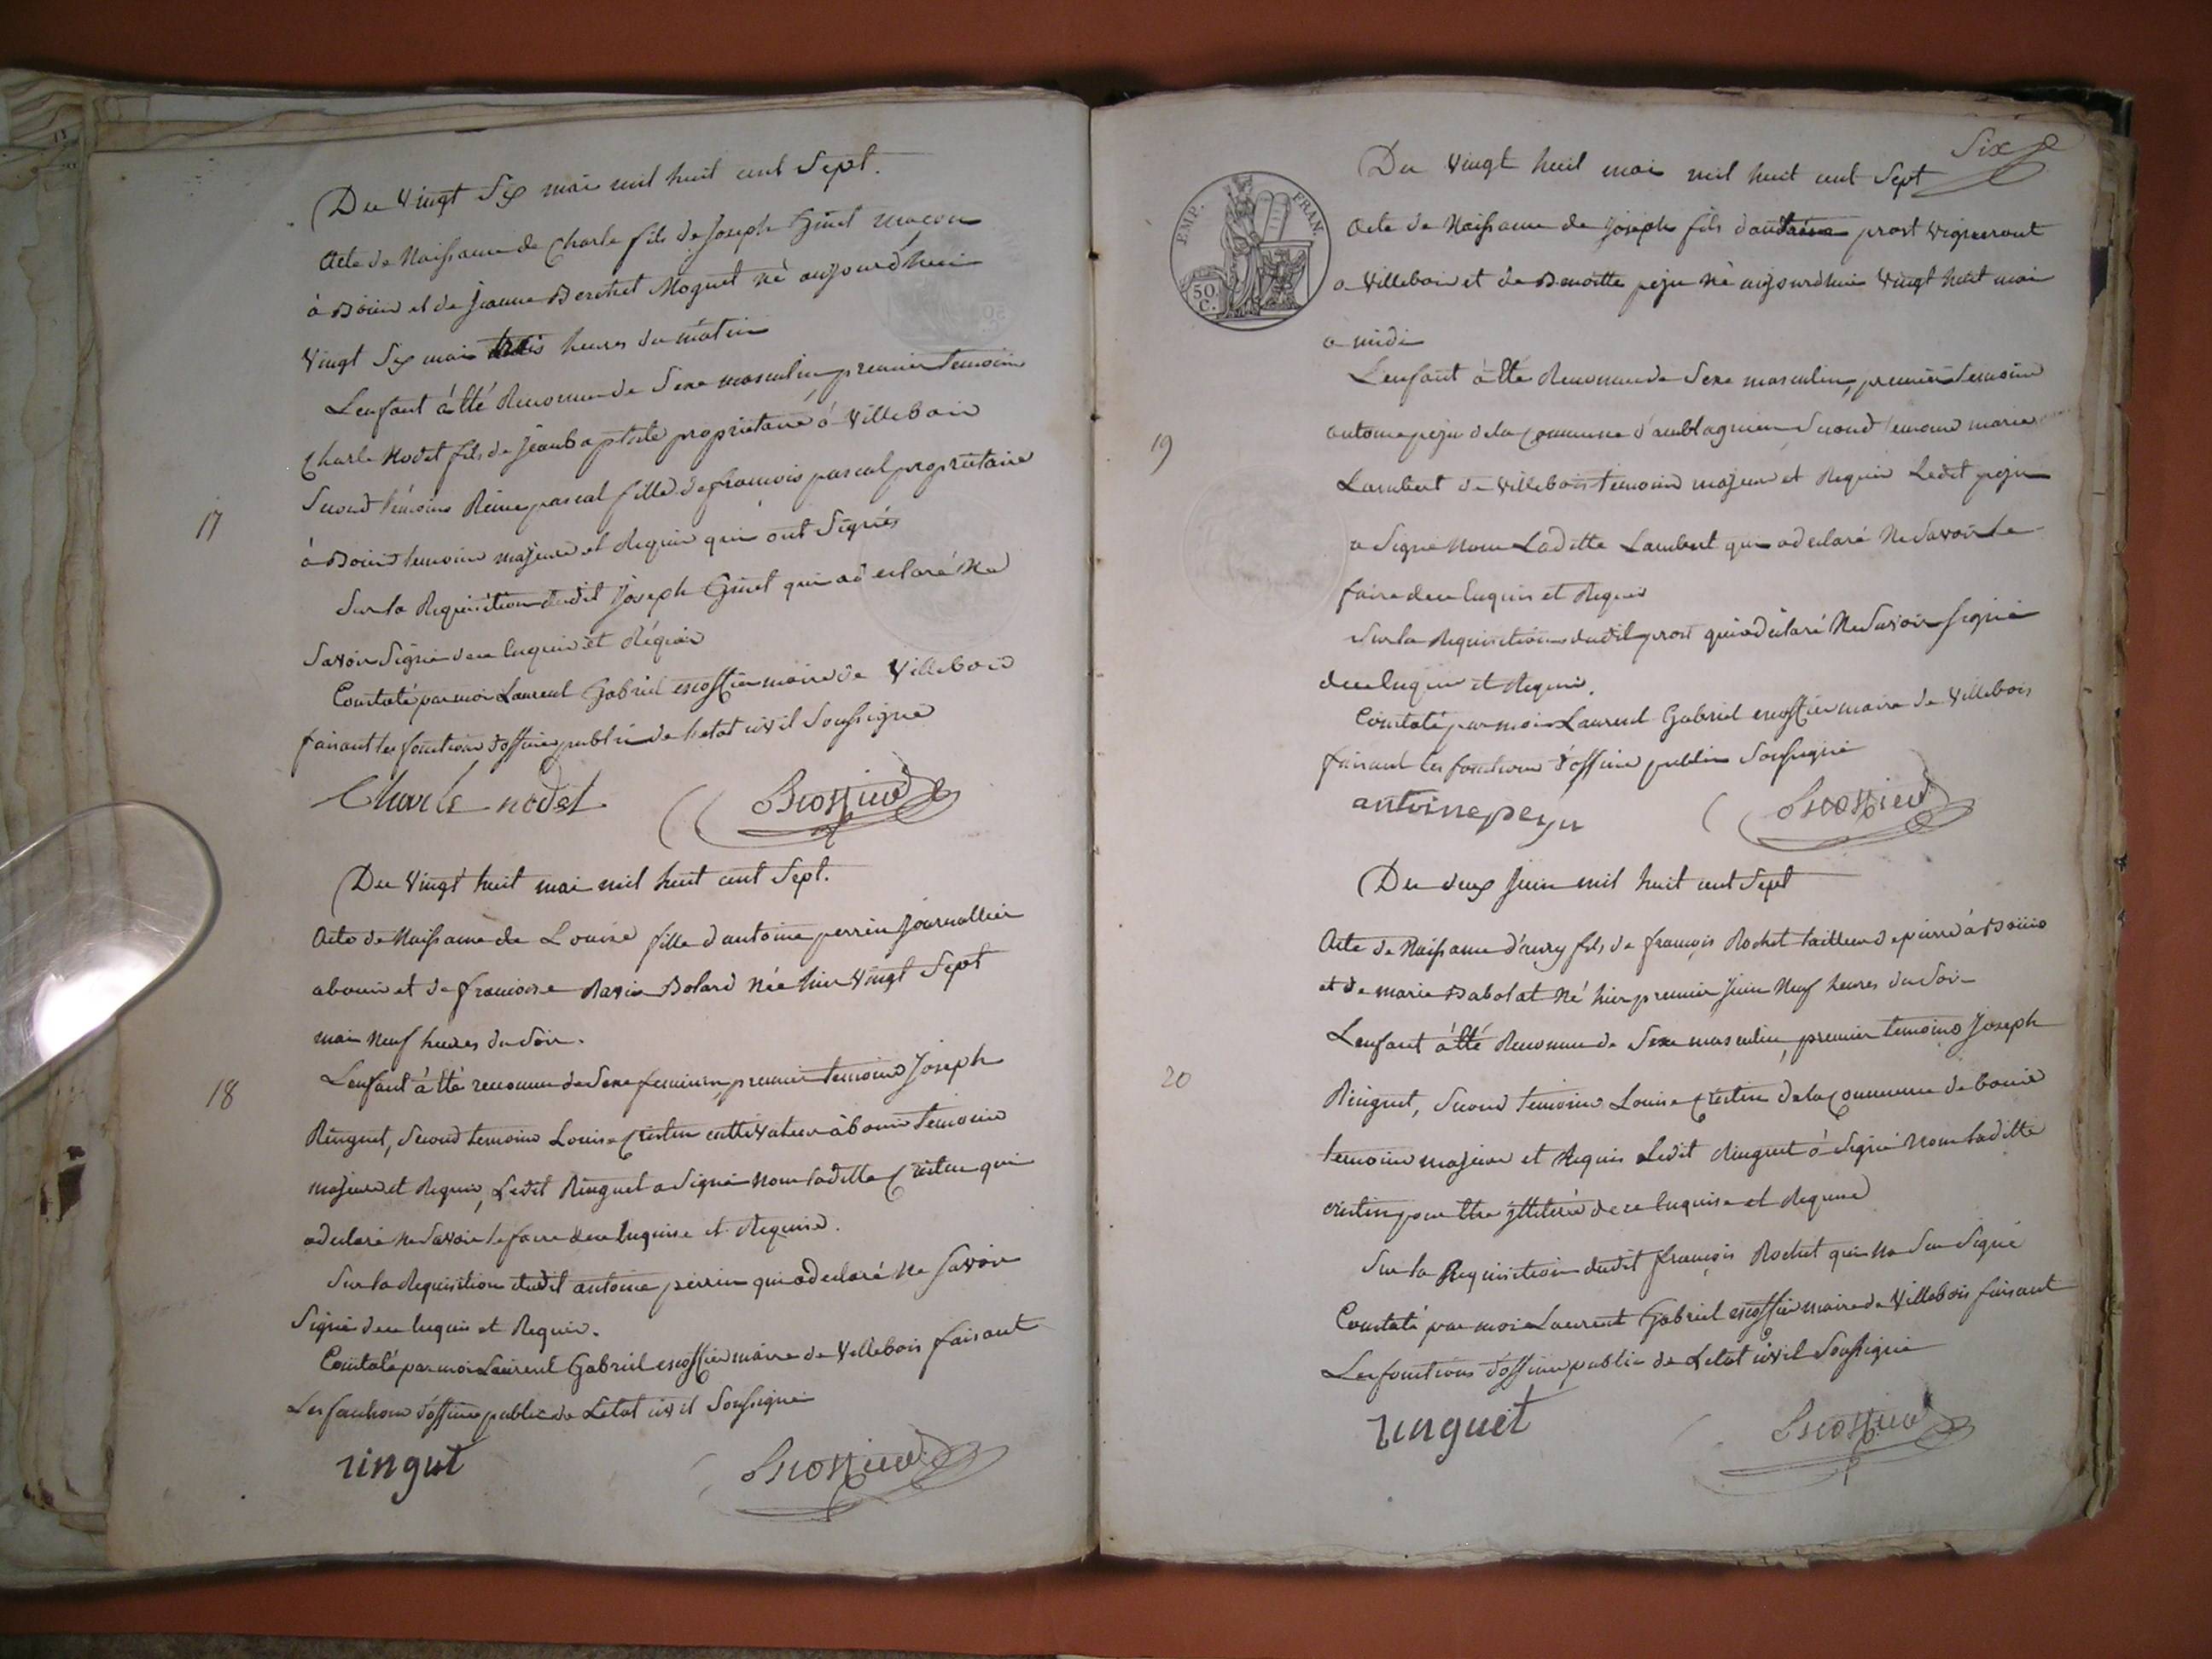 Du Vingt Six mai mil huit cent Sept.
Acte de Naissance de Charle fils de Joseph Ginet maçon
à Bouis et de Jeanne Berchet Moguet né aujourd'huis
Vingt Six mai trois heures du matin
L'enfant à Eté Reconnu de Sexe masculin, premier temoin
Charle Nodet fils de Jeanbaptiste proprietaire à Villebois
Second témoins Reine pascal fille de françois pascal proprietaire
à Bouis temoins majeurs et Requis qui ont Signés
Sur la Requisition dudit Joseph Ginet qui a déclaré Ne
Savoir Signé de ce Enquis et Réquis
17
Constaté par moi Laurent Gabriel escoffier maire de Villebois
faisant les fonctions d'officier public de l'etat civil Soussigné
Charle nodet
Escoffier
Du Vingt huit mai mil huit cent Sept.
Acte de Naissance de Louise fille d'antoine perrin Journallier
a bouis et de francoise Ravis Bolard Née hier Vingt Sept
mai Neuf heures du Soir.
L'enfant à Eté reconnu de Sexe feminin, premier temoins Joseph
18
Ringuet, Second temoins Louise Cristin cultivateur à bouis temoins
majeurs et Requis, Ledit Ringuet a Signé Non ladite Cristin qui
a déclaré ne Savoir le faire de ce Enquise et Requise.
Sur la Requisition dudit antoine perrin qui a déclaré Ne Savoir
Signé de ce Enquis et Requis.
Constaté par moi Laurent Gabriel escoffier maire de Villebois faisant
Les fonctions d'officier public de Letat civil Soussigné
ringuet
Escoffier
Six
Du Vingt huit mai mil huit cent Sept
EMP. FRAN.
50 C.
Acte de Naissance de Joseph fils d'antoine prost Vigneront
a Villebois et de Benoitte peju né aujourdhuis Vingt huit mai
a midi
L'enfant à Eté Reconnu de Sexe masculin, premier temoins
antoine peju de la Commune d' Second temoins marie
19
Lambert de Villebois temoins majeurs et Requis Ledit peju
a Signé Non Laditte Lambert qui a declaré Ne Savoir le
faire de ce Enquis et Requis
Sur la Requisition dudit prost qui a déclaré Ne Savoir Signé
de ce Enquis et Requis.
Constaté par moi Laurent Gabriel escoffier maire de Villebois
faisant les fonctions d'officier public Soussigné
antoine peju
Escoffier
Du deux Juin mil huit cent Sept
Acte de Naissance d'aury fils de françois Rochet tailleur de pierre à Bouis
et de marie Babolat Né hier premier Juin Neuf heures du Soir
L'enfant à Eté Reconnu de Sexe masculin, premier temoins Joseph
20
Ringuet, Second temoins Louise Cristin de la Commune de bouis
temoins majeurs et Requis Ledit Ringuet à Signé Non laditte
cristin pour Etre de ce Enquise et Requise
Sur la Requisition dudit françois Rochet qui Ne Signé
Constaté par moi Laurent Gabriel escoffier maire de Villebois faisant
Les fonctions d'officier public de Letat civil Soussigné
ringuet
Escoffier